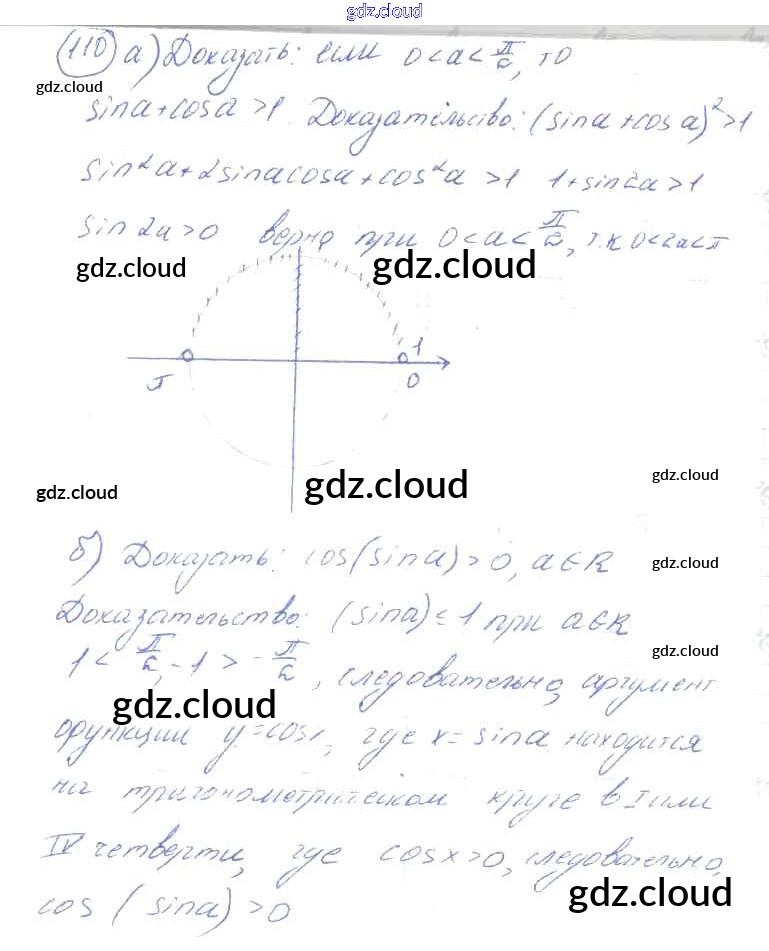 gdz.cloud
110 а) Доказать: если 0 < a < π/2, то
gdz.cloud
sin a + cos a > 1. Доказательство: (sin a + cos a)² > 1
sin² a + 2 sin a cos a + cos² a > 1 1 + sin 2a > 1
sin 2a > 0 верно при 0 < a < π/2, т.к 0 < 2a < π
gdz.cloud gdz.cloud
1
π 0
gdz.cloud gdz.cloud gdz.cloud
б) Доказать: cos(sin a) > 0, a ∈ R
gdz.cloud
Доказательство: (sin a) ≤ 1 при a ∈ R
gdz.cloud
1 < π/2, -1 > -π/2, следовательно, аргумент
gdz.cloud
функции y = cos x, где x = sin a находится
на тригонометрическом круге в I или
IV четверти, где cos x > 0, следовательно,
gdz.cloud
cos (sin a) > 0